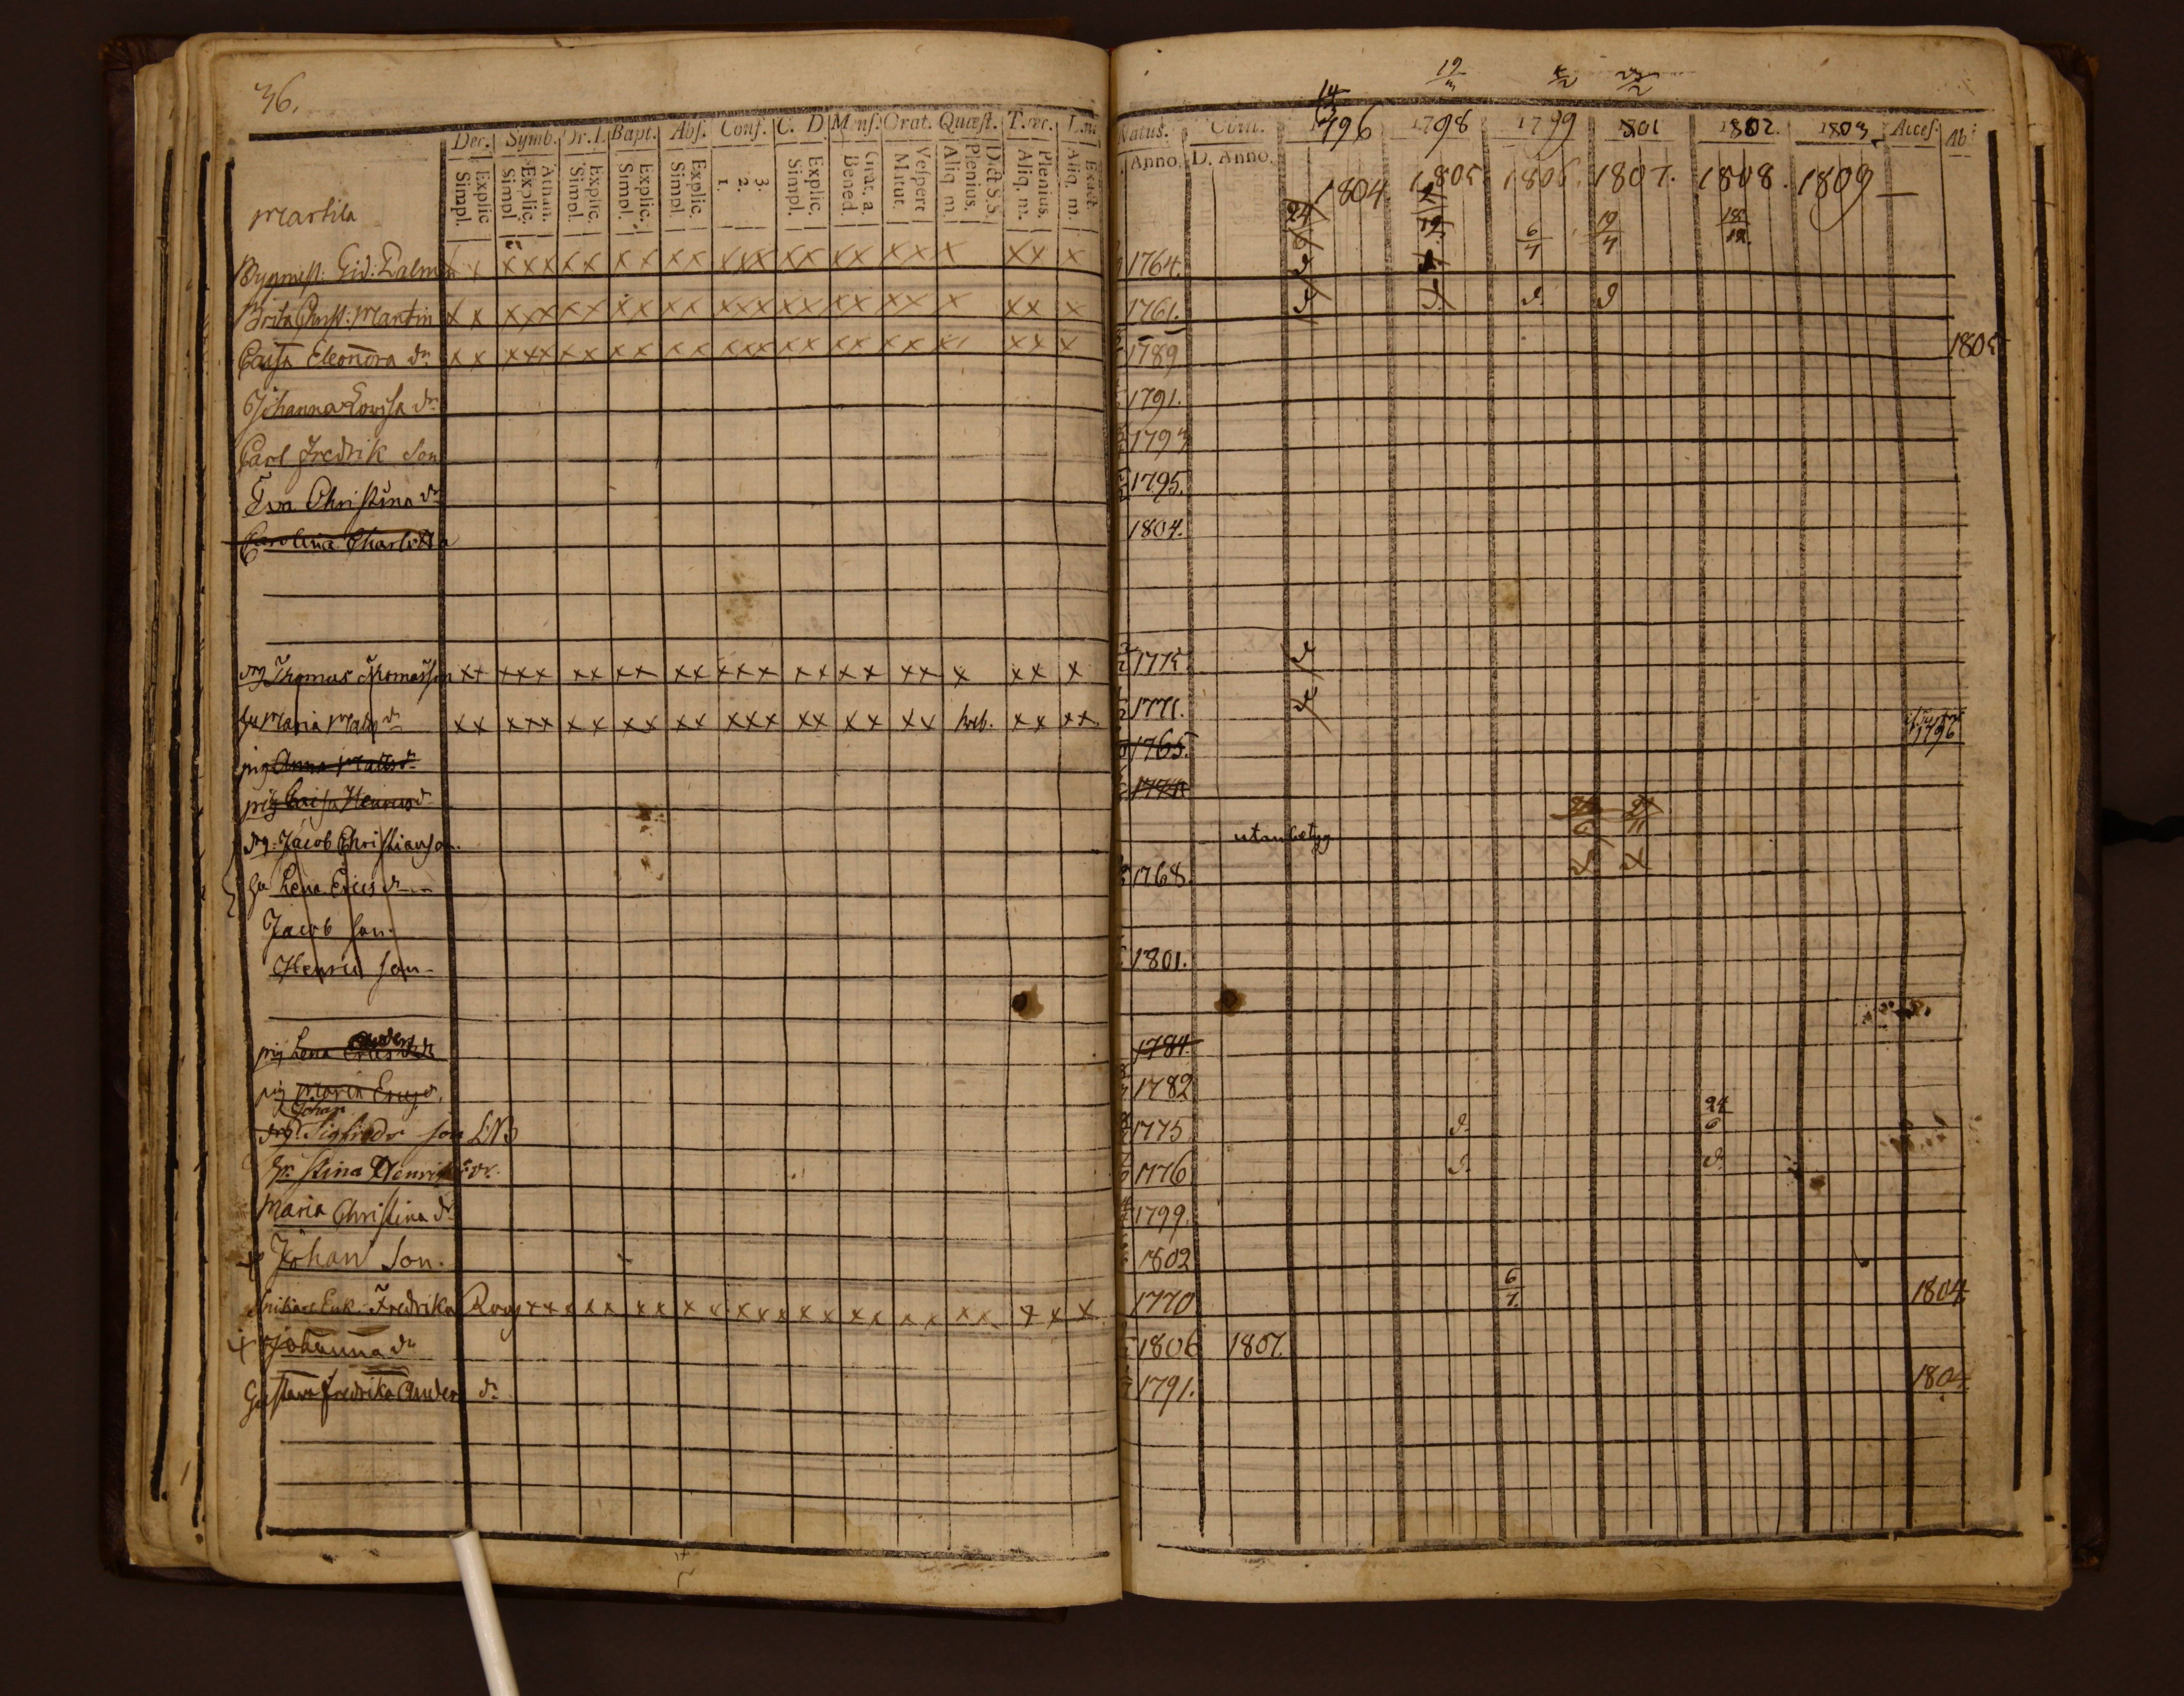 36.
Dec. Symb. Or. D. Bapt. Abs. Conf. C. D. Mens. Orat. Quæst. T. œc.
Explic. Simpl. Athan. Explic. Simpl. Explic. Simpl. Explic. Simpl. Explic. Simpl. 3. 2. 1. Explic. Simpl. Grat. a. Bened. Vespert. Matut. Dct S.S. Plenius. Aliq. m. Plenius. Aliq. m. Exact. Aliq. m.
Natus. Com. 1796 1798 1799 1801 1802. 1803 Acces. Ab:
Anno. D. Anno. 1804 1805 1806. 1807. 1808. 1809
Martila
Byggmest: Gid: Dalman x x x x x x x x x x x x x x x x x x x x x x x x x 1764.
Brita Christ: Martin x x x x x x x x x x x x x x x x x x x x x x x x 1761.
Caisa Eleonora dr x x x x x x x x x x x x x x x x x x x x x x x x 1789 1805
Johanna Lovisa dr 1791.
Carl Fredrik Son 1793
Eva Christina dr 1795.
Carolina Charlotta 1804.
drg Thomas Thomasson xx xxx xx xx xx xxx xx xx xx x xx x 1775.
hu Maria Matsdr xx xxx xx xx xx xxx xx xx xx heb. xx xx 1771. 1796
pig Anna Matsdr 1765.
pig Caisa Henricsdr
drg. Jacob Christianson. utan betyg
hu Lena Ericsdr 1768.
Jacob son.
Henric son 1801.
pig Lena Anders dr 1784.
pig Maria Ericsdr. 1782
Johan
drg. Sigfrids son LNB 1775 24/6
hr. Stina Henriksdr. 1776
Maria Christina dr 1799.
Johan Son. 1802
Enk. Fredrika Roos xx xxx xx xx xxx xx xx xx xx x x x 1770 6/7. 1804
Johanna dr 1806 1807.
Gustava Fredrika Anders dr 1791. 1804.